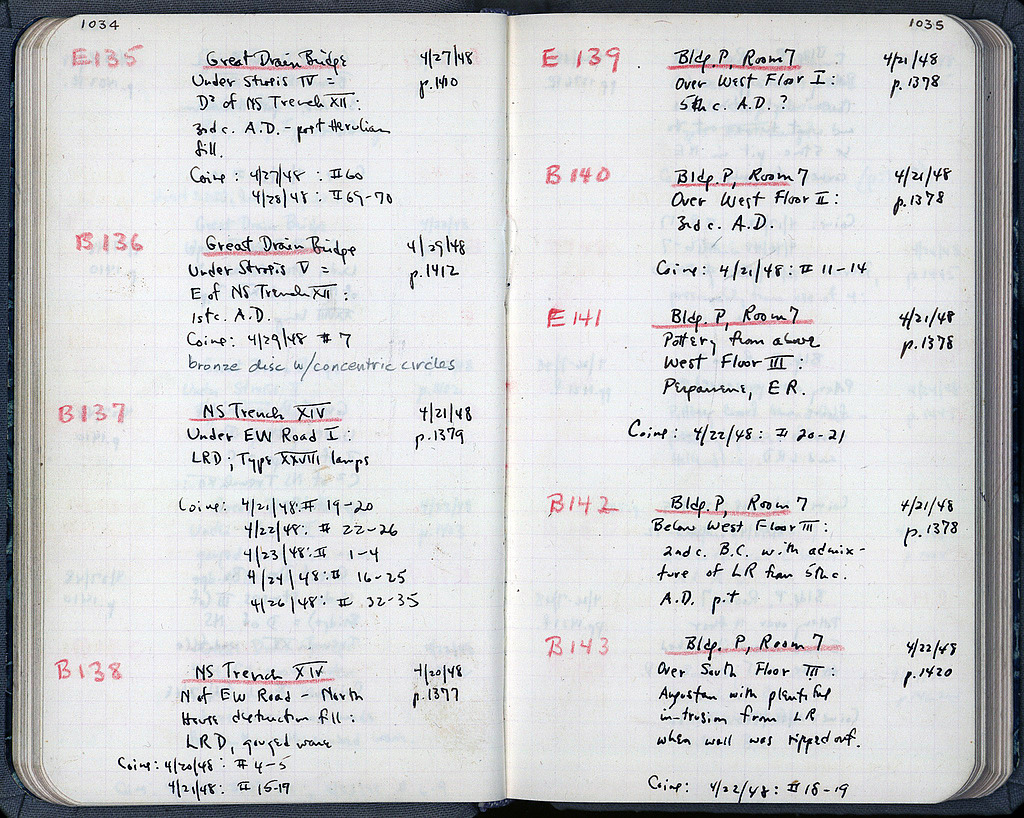 1034
E135 Great Drain Bridge 4/27/48
Under Strosis IV = p.1410
D² of NS Trench XII:
3rd c. A.D. - post Herulian
fill.
Coins: 4/27/48: # 60
4/28/48: # 69-70
B136 Great Drain Bridge 4/29/48
Under Strosis V = p.1412
E of NS Trench XII:
1st c. A.D.
Coins: 4/29/48 # 7
bronze disc w/concentric circles
B137 NS Trench XIV 4/21/48
Under EW Road I: p.1379
LRD, Type XXVIII lamps
Coins: 4/21/48: # 19-20
4/22/48: # 22-26
4/23/48: # 1-4
4/24/48: # 16-25
4/26/48: # 32-35
B138 NS Trench XIV 4/20/48
N of EW Road - North p.1377
House destruction fill:
LRD, gouged ware
Coins: 4/20/48: # 4-5
4/21/48: # 15-19
1035
E 139 Bldg. P, Room 7 4/21/48
Over West Floor I: p.1378
5th c. A.D.?
B140 Bldg. P, Room 7 4/21/48
Over West Floor II: p.1378
3rd c. A.D.
Coins: 4/21/48: # 11-14
E141 Bldg. P, Room 7 4/21/48
Pottery from above p.1378
West Floor III:
Pergamene, E.R.
Coins: 4/22/48: # 20-21
B142 Bldg. P, Room 7 4/21/48
Below West Floor III: p.1378
2nd c. B.C. with admix-
ture of LR from 5th c.
A.D. pit
B143 Bldg. P, Room 7 4/22/48
Over South Floor III: p.1420
Augustan with plentiful
intrusion from LR
when wall was ripped out.
Coins: 4/22/48: # 18-19